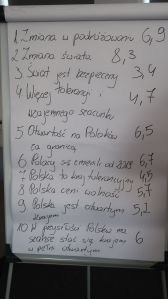 1 Zmiana w podróżowaniu 6,9
2 Zmiana świata 8,3
3 Świat jest bezpieczny 3,4
4 Więcej tolerancji i 4,7
wzajemnego szacunku
5 Otwartość na Polaków 6,5
za granicą
6 Polacy się zmienili od 5,7
7 Polska to kraj tolerancyjny 4,5
8 Polska ceni wolność 5,7
9 Polska jest otwartym 5,1
krajem
10 W przyszłości Polska ma
szansę stać się krajem 6
w pełni otwartym